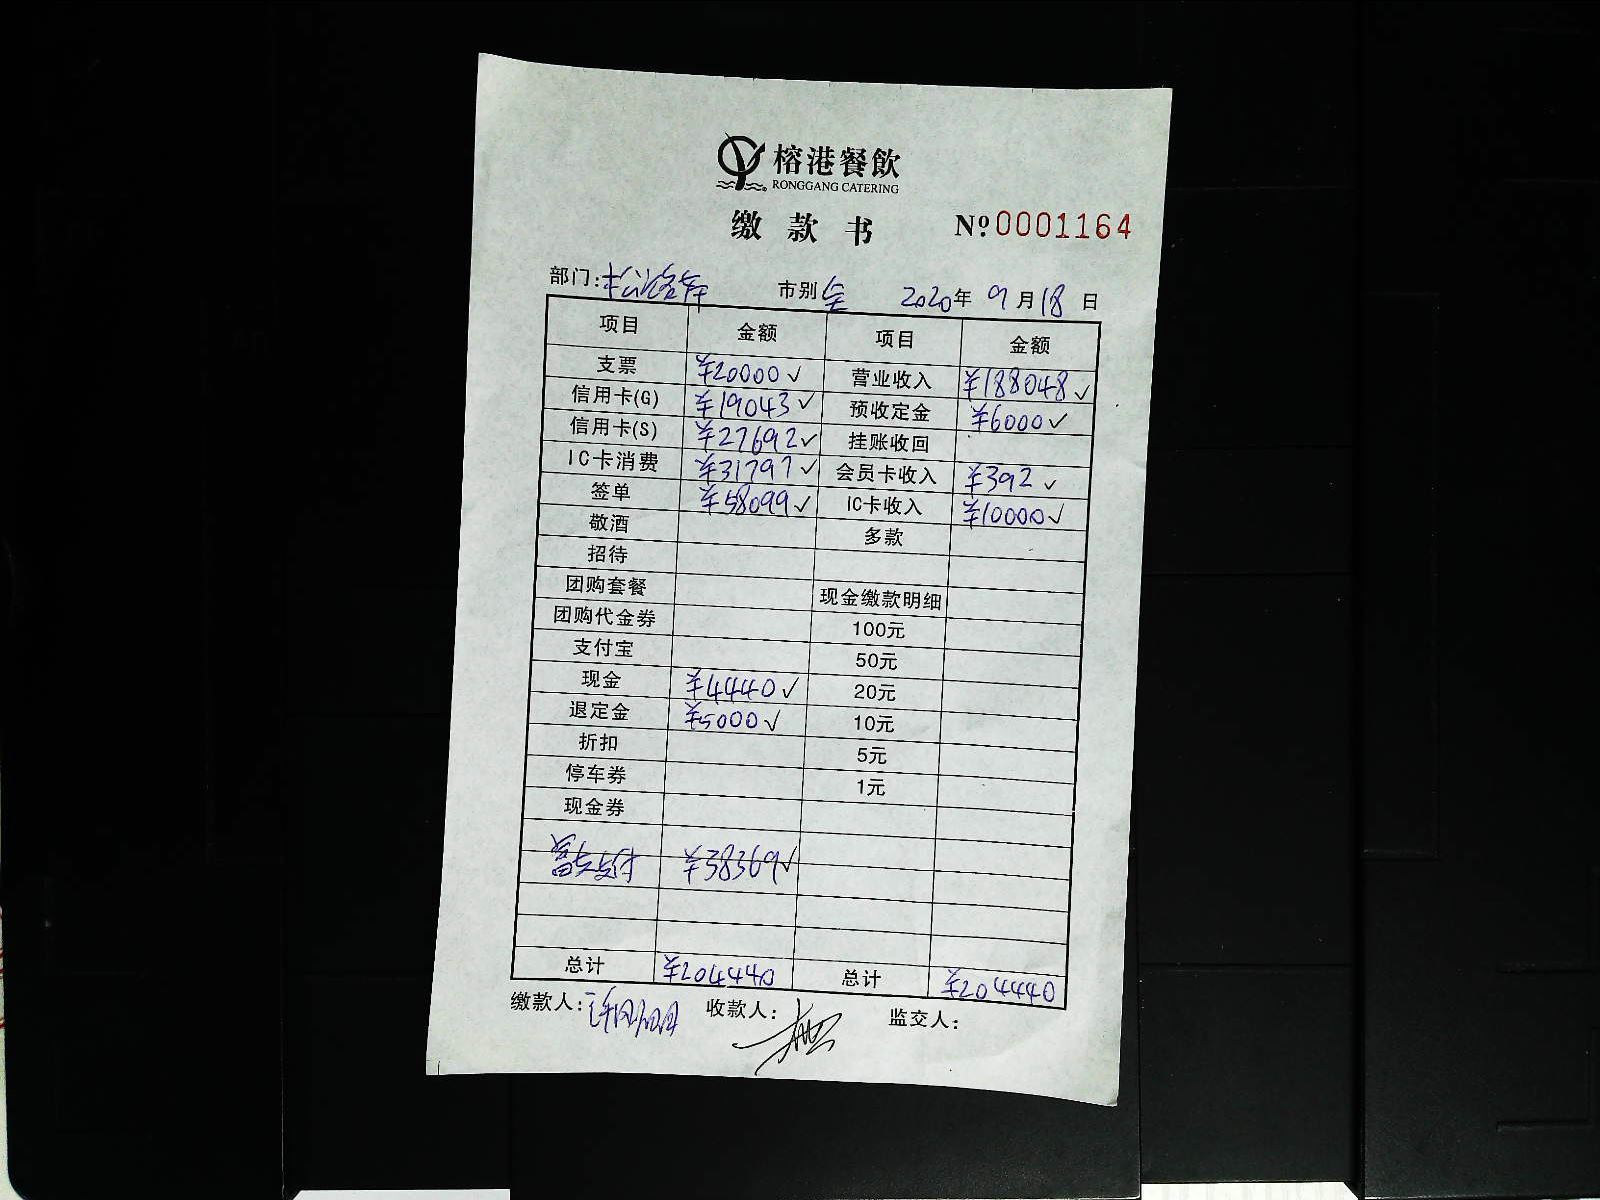 榕港餐飲
RONGGANG CATERING
缴款书 №0001164
部门: 市别 全 2020年 9月18日
项目 金额 项目 金额
支票 ¥20000✓ 营业收入 ¥188048✓
信用卡(G) ¥19043✓ 预收定金 ¥6000✓
信用卡(S) ¥27692✓ 挂账收回
IC卡消费 ¥31797✓ 会员卡收入 ¥392✓
签单 ¥58099✓ IC卡收入 ¥10000✓
敬酒 多款
招待
团购套餐 现金缴款明细
团购代金券 100元
支付宝 50元
现金 ¥4440✓ 20元
退定金 ¥5000✓ 10元
折扣 5元
停车券 1元
现金券
¥38369✓
总计 ¥204440 总计 ¥204440
缴款人: 收款人: 监交人: